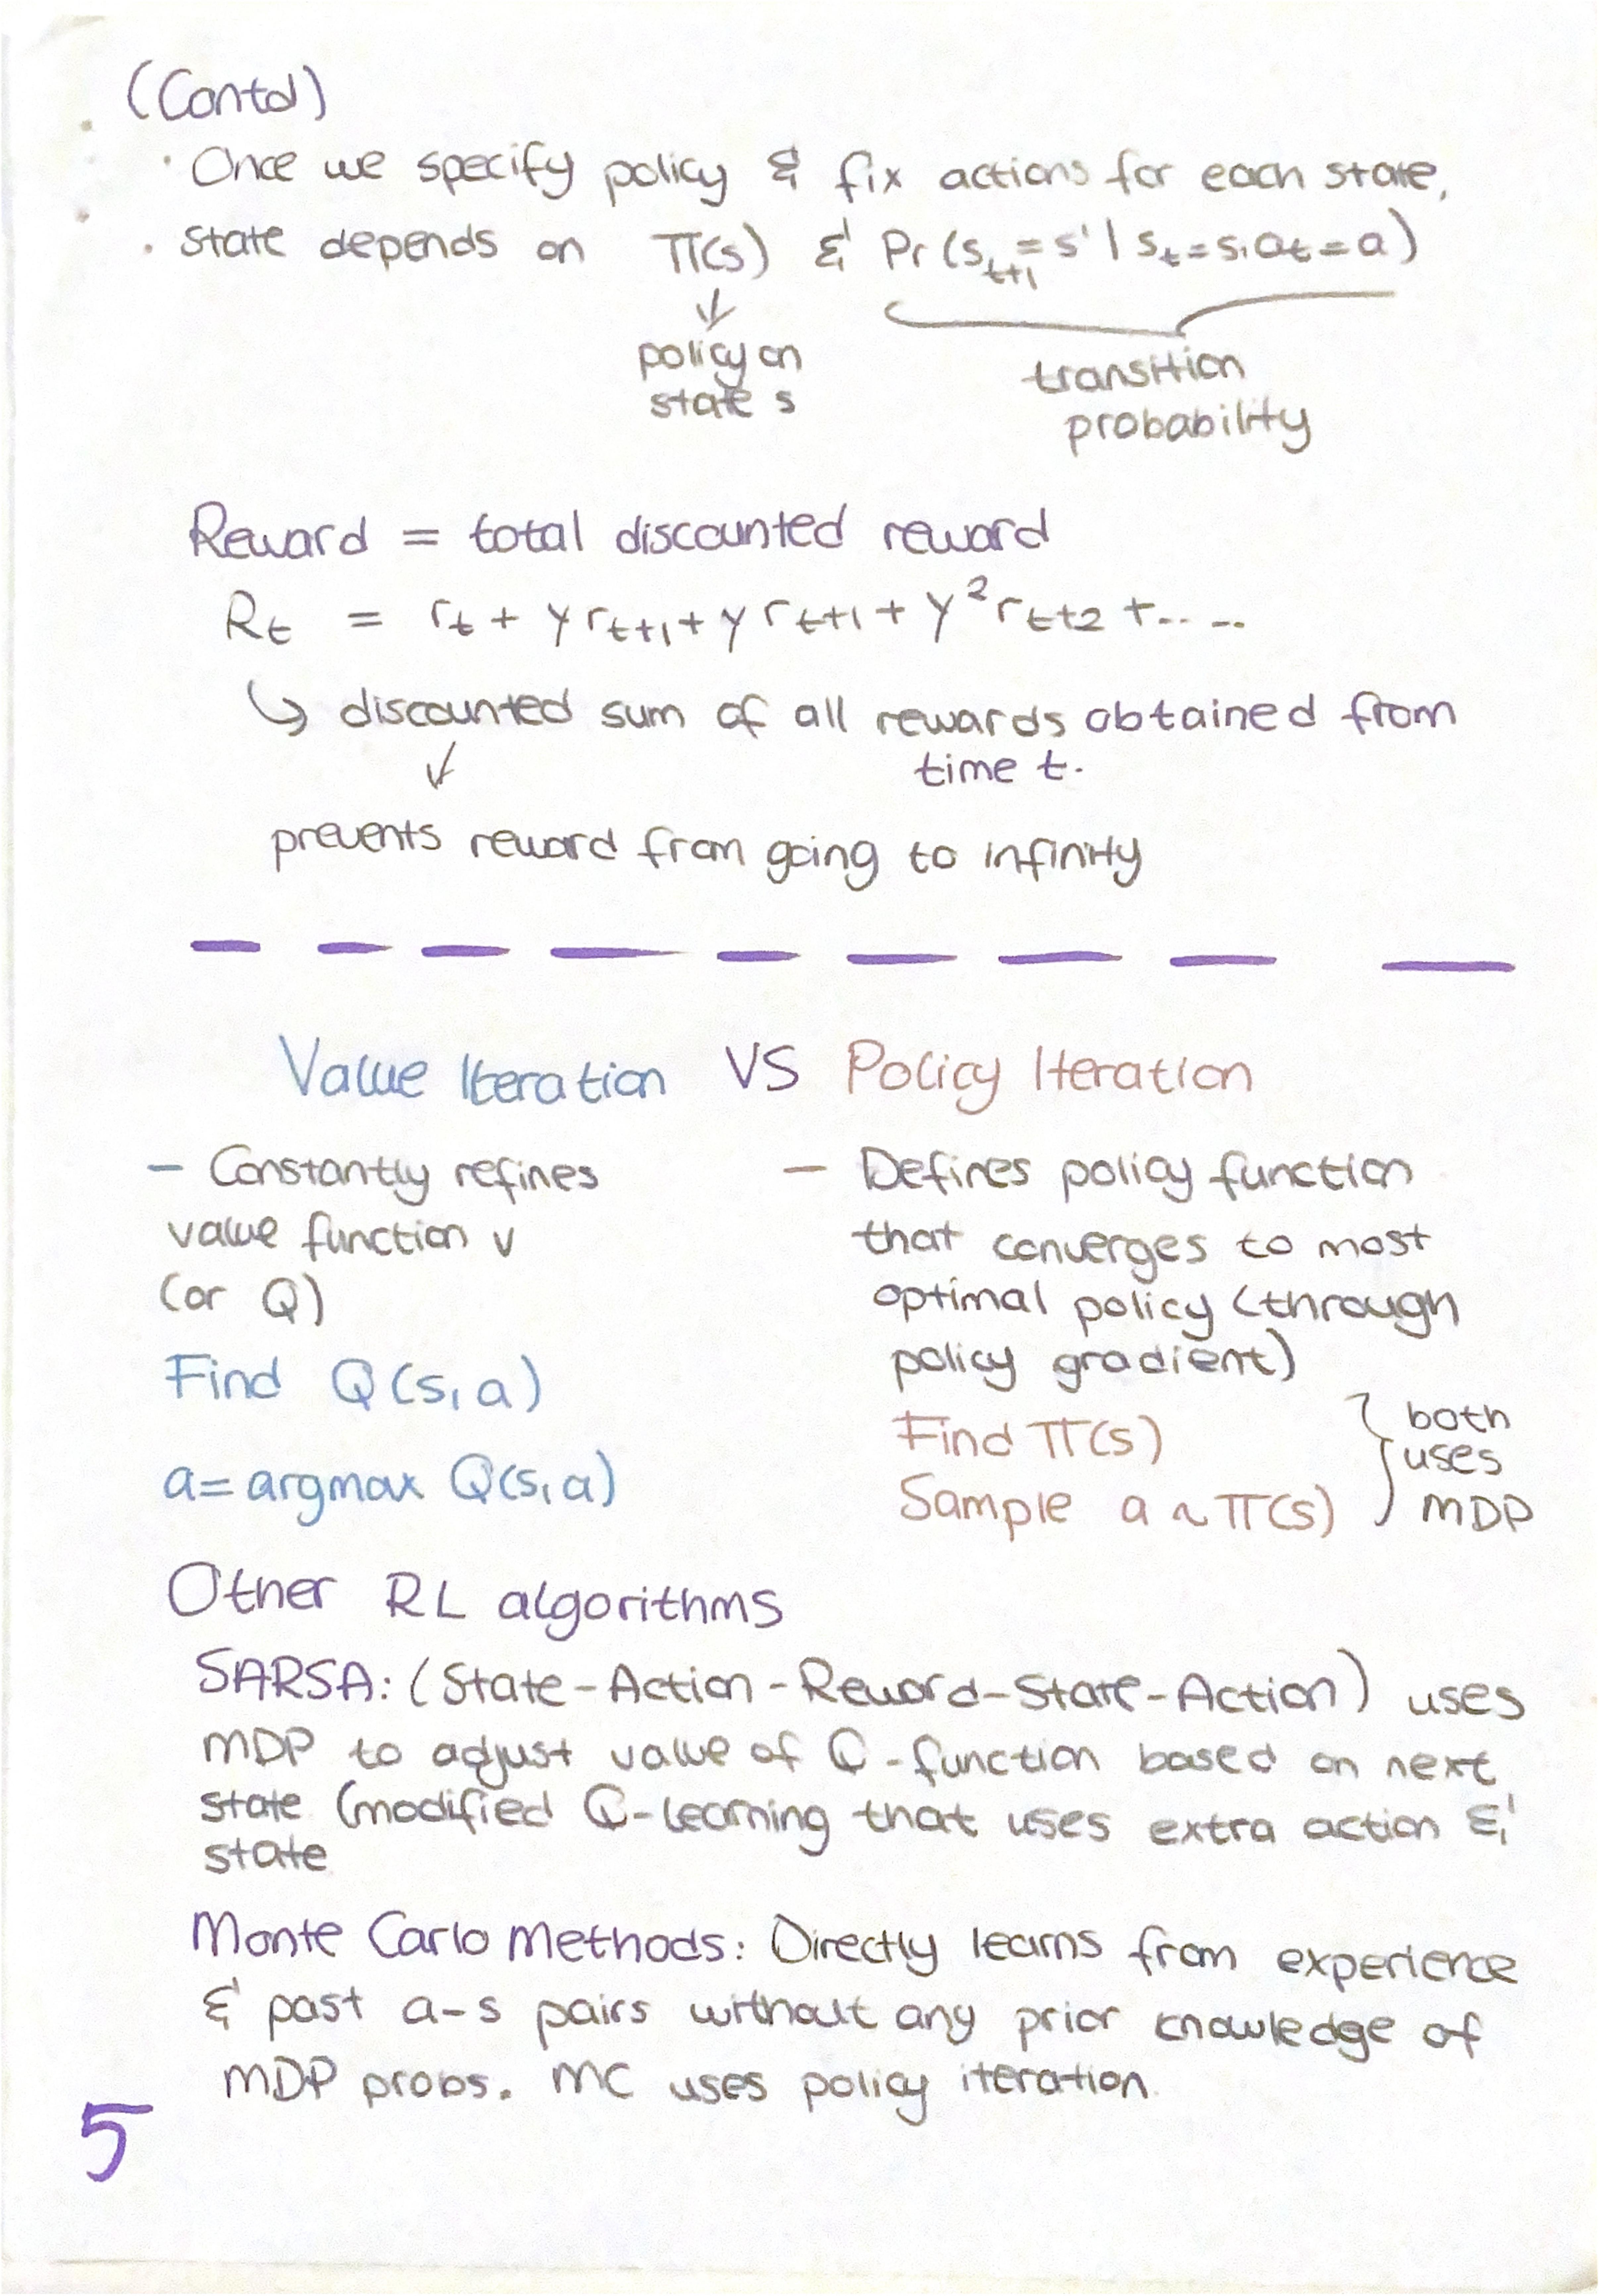 (Contd)
· Once we specify policy & fix actions for each state,
· state depends on π(s) & Pr(s_{t+1} = s' | s_t = s, a_t = a)
↓
policy on
state s
transition
probability
Reward = total discounted reward
R_t = r_t + γ r_{t+1} + γ r_{t+1} + γ² r_{t+2} + .... 
↳ discounted sum of all rewards obtained from
time t.
↓
prevents reward from going to infinity
Value Iteration VS Policy Iteration
– Constantly refines
value function v
(or Q)
Find Q(s, a)
a = argmax Q(s, a)
– Defines policy function
that converges to most
optimal policy (through
policy gradient)
Find π(s)
Sample a ~ π(s)
both
uses
MDP
Other RL algorithms
SARSA: (State-Action-Reward-State-Action) uses
MDP to adjust value of Q-function based on next
state (modified Q-learning that uses extra action &
state
Monte Carlo Methods: Directly learns from experience
& past a-s pairs without any prior knowledge of
MDP probs. MC uses policy iteration.
5